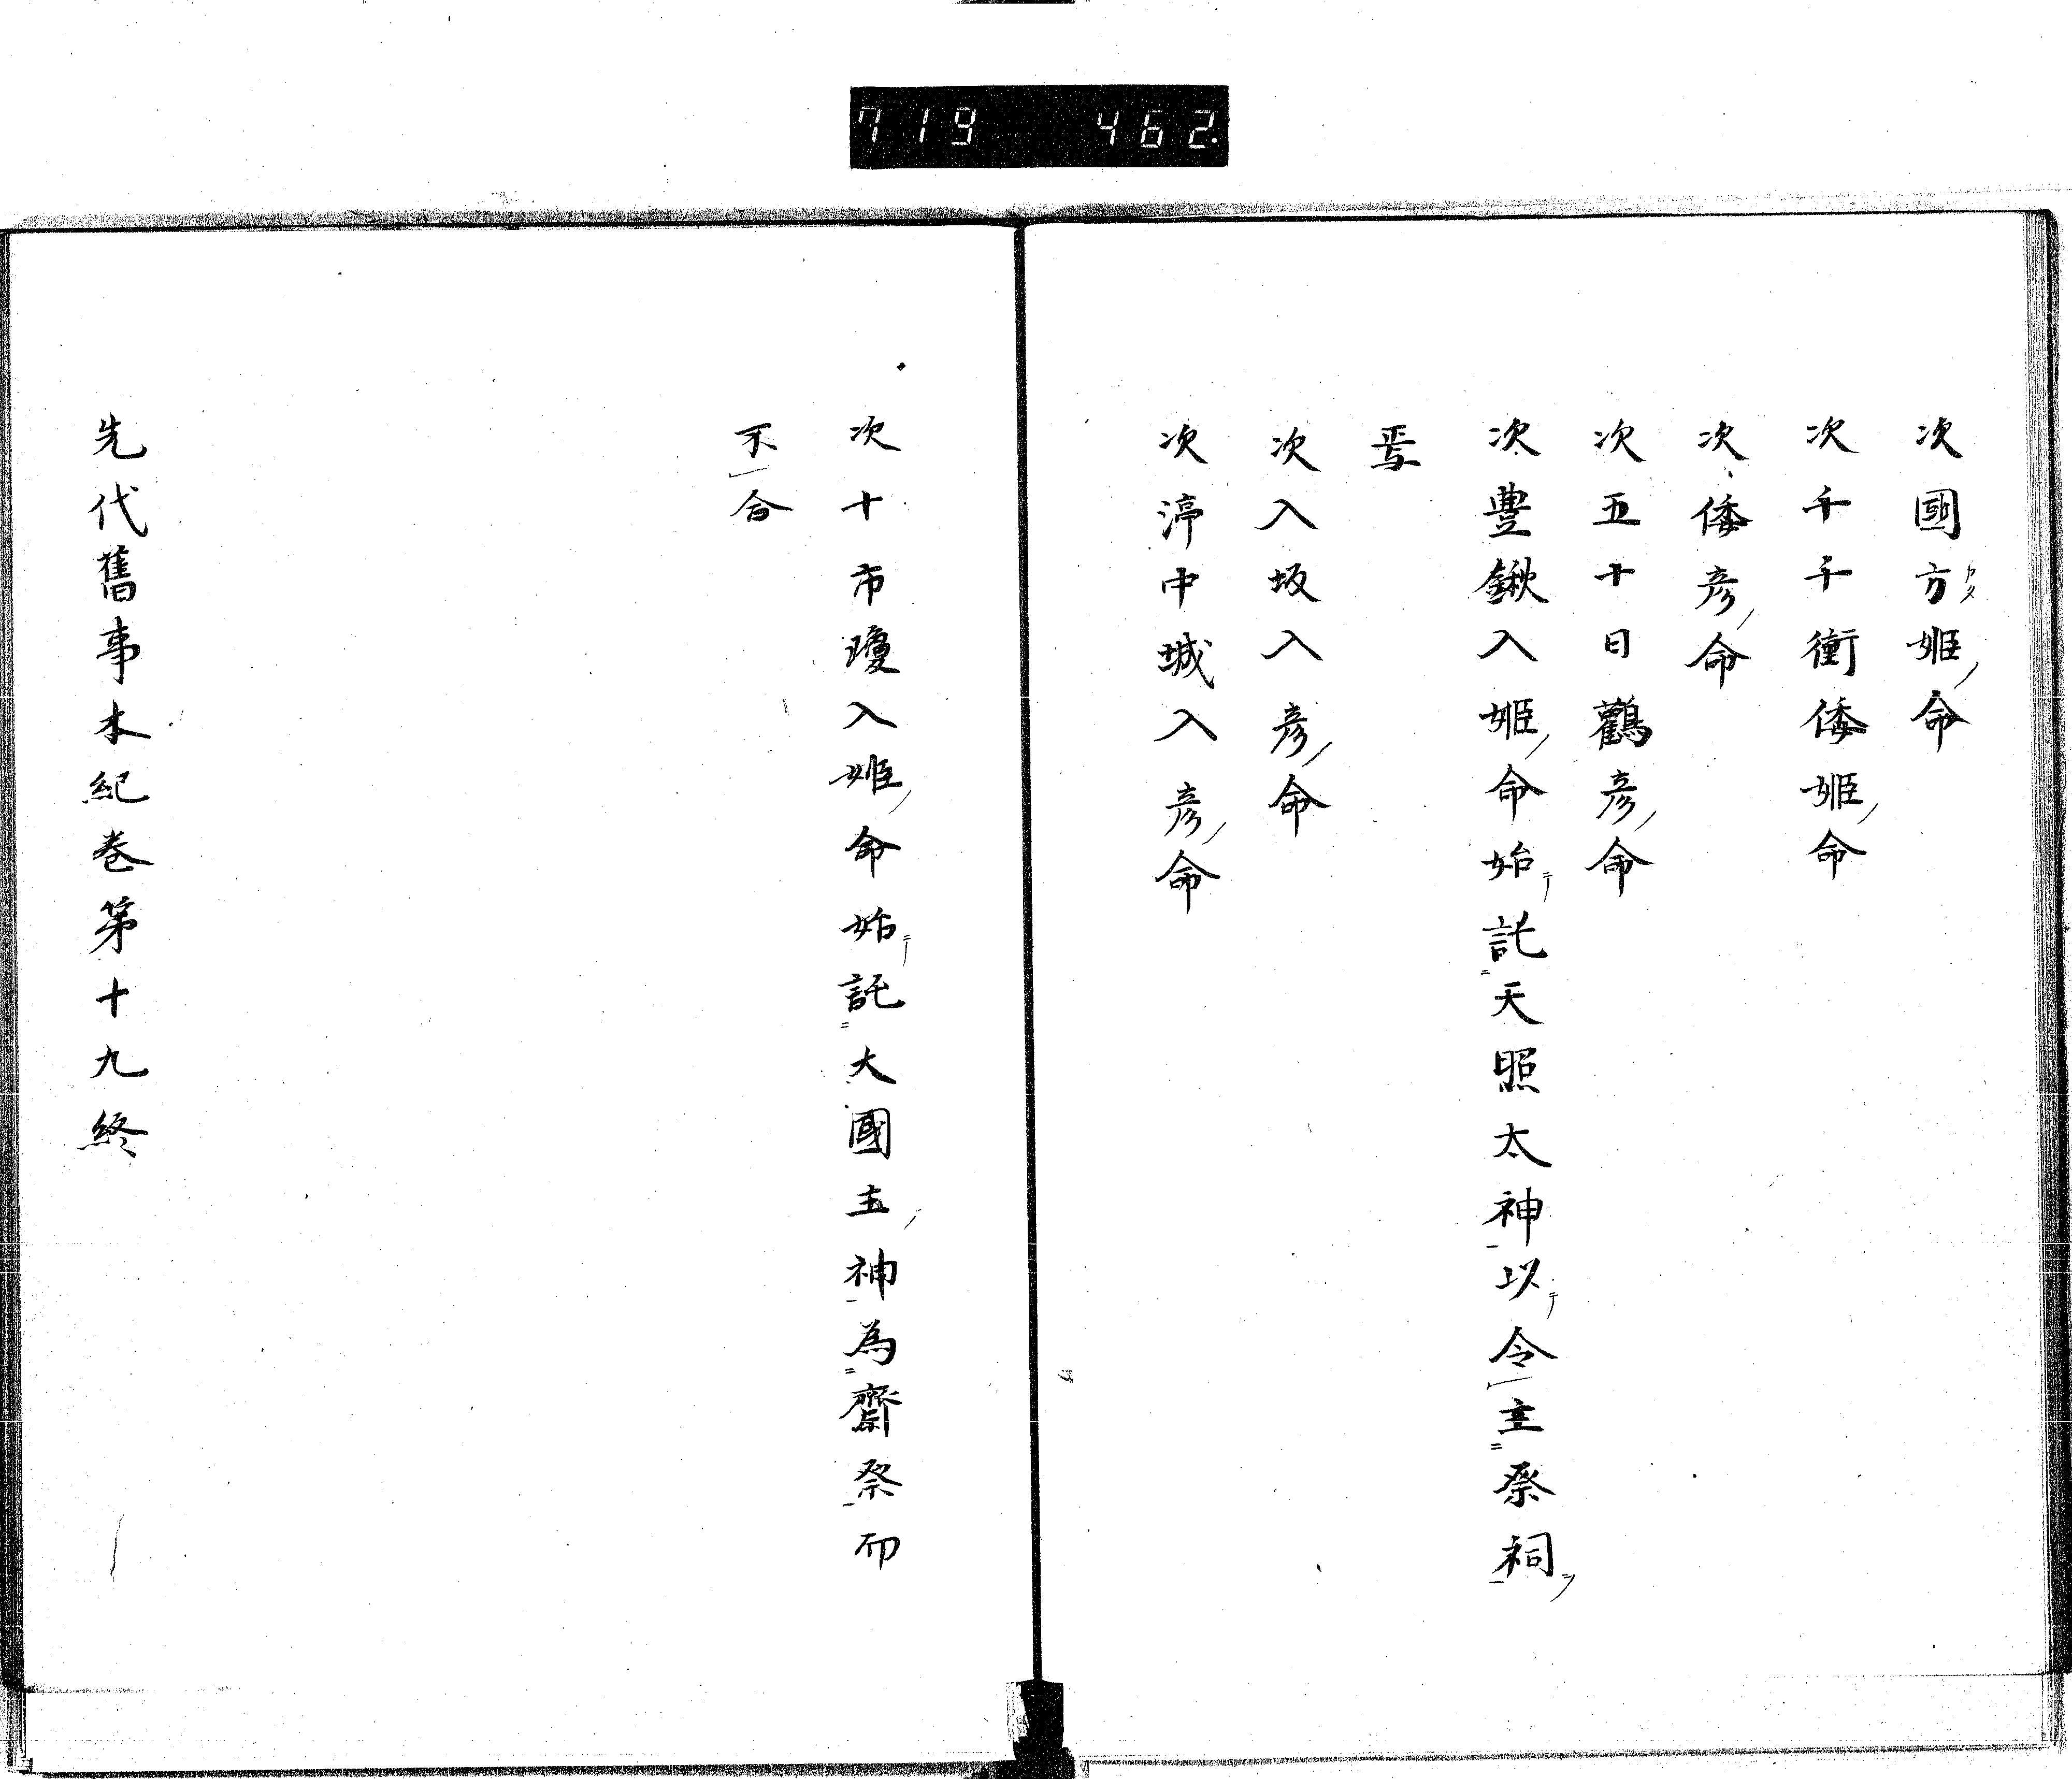 719 462
次國方姫命
カタ
次千千衝倭姫命
次倭彦命
次五十日鶴彦命
次豊鍬入姫命始託天照太神以令主祭祠
焉
次入坂入彦命
次渟中城入彦命
次十市瓊入姫命始託大國主神為齋祭而
不合
先代舊事本紀卷第十九終